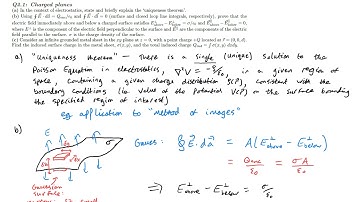 Q2.1: Charged planes
(a) In the context of electrostatics, state and briefly explain the "uniqueness theorem".
(b) Using ∮ E⃗ · da⃗ = Q_enc/ε₀ and ∮ E⃗ · dl⃗ = 0 (surface and closed loop line integrals, respectively), prove that the
electric field immediately above and below a charged surface satisfies E⊥above − E⊥below = σ/ε₀ and E∥above = E∥below,
where E⊥ is the component of the electric field perpendicular to the surface and E∥ are the components of the electric
field parallel to the surface. σ is the charge density of the surface.
(c) Consider an infinite grounded metal sheet in the xy plane at z = 0, with a point charge +Q located at r⃗ = (0, 0, d).
Find the induced surface charge in the metal sheet, σ(x, y), and the total induced charge Q_ind = ∫ σ(x, y) dxdy.
a) "Uniqueness theorem" — there is a single (unique) solution to the
Poisson Equation in electrostatics, ∇²V = -ρ/ε₀, in a given region of
space, containing a given charge distribution ρ(r⃗), consistent with the
boundary conditions (ie value of the Potential V(r⃗) on the surface bounding
the specified region of interest)
eg. application to "method of images"
b)
Gauss: ∮ E⃗ · da⃗ = A(E⊥above − E⊥below)
= Qenc/ε₀ = σA/ε₀
⇒ E⊥above − E⊥below = σ/ε₀
Gaussian
surface: